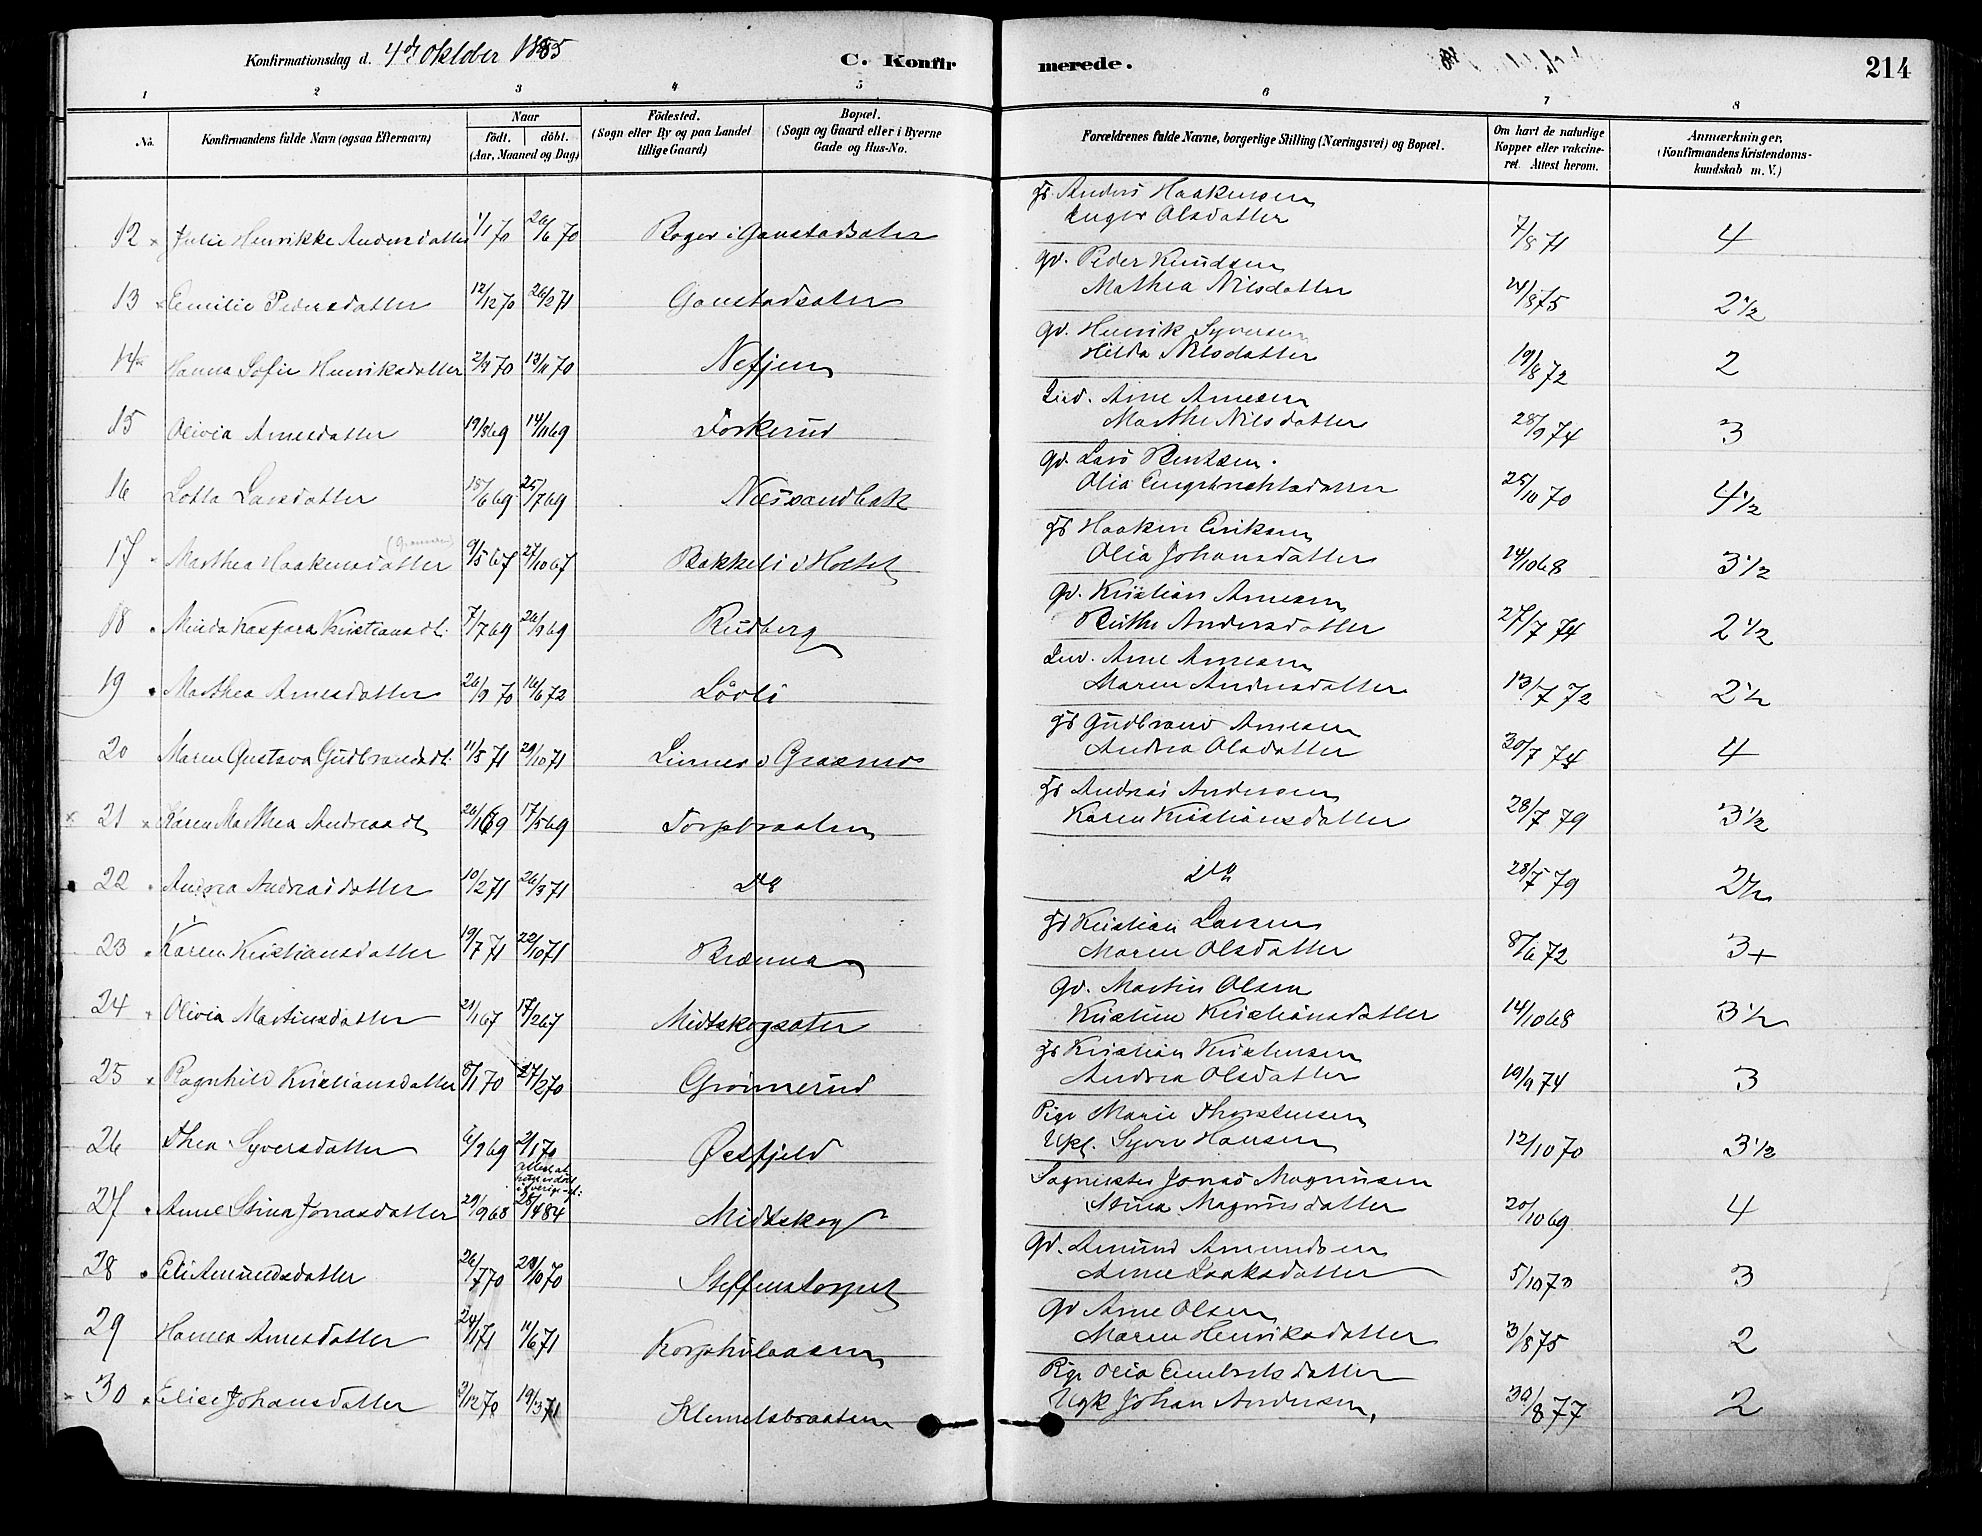 Konfirmationsdag d. 4de Oktober 1885
C. Konfirmerede.
214
1 2 3 4 5 6 7 8
No.
Konfirmandens fulde Navn (ogsaa Efternavn)
Naar
født. døbt.
(Aar, Maaned og Dag)
Fødested.
(Sogn eller By og paa Landet
tillige Gaard)
Bopæl.
(Sogn og Gaard eller i Byerne
Gade og Hus-No.
Forældrenes fulde Navne, borgerlige Stilling (Næringsvei) og Bopæl.
Om havt de naturlige
Kopper eller vakcine-
ret. Attest herom.
Anmærkninger.
(Konfirmandens Kristendoms-
kundskab m. V.)
Anders Haakensen
12 Julie Henrikke Andersdatter 1/1 70 26/6 70 i Gaustadsæter Inger Olsdatter 7/8 71 4
gv. Peder Knudsen
13 Emilie Pedersdatter 12/12 70 26/2 71 Gaustadsæter Mathea Nilsdatter 24/8 75 2 1/2
gv. Henrik Syversen
14 Hanna Sofie Henriksdatter 13/11 70 Hilda Nilsdatter 19/8 72 2
Arne Arnesen
15 Olivia Arnesdatter 14/11 69 Torkerud Marthe Nilsdatter 28/9 74 3
gv. Lars Berntsen.
16 Lotta Larsdatter 18/6 69 25/7 69 Næssandbak Olia 25/10 70 4 1/2
Haaken Eriksen
17 Marthea Haakensdatter 9/5 67 27/10 67 Bakkeli i Holtet Olia Johansdatter 14/10 68 3 1/2
gv. Kristian Arnesen
18 Minda Kaspara Kristiansdt. 7/7 69 26/9 69 Rudberg Berthe Andersdatter 27/7 74 2 1/2
Arne Arnesen
19 Marthea Arnesdatter 26/9 70 16/6 72 Løvli Maren Andersdatter 13/7 72 2 1/2
Gudbrand Arnesen
20 Maren Gustava Gudbrandsdt. 11/5 71 29/10 71 Linnes i Andrea Olsdatter 30/7 74 4
Andreas Andersen
21 Karen Marthea Andreasdt 26/1 69 17/5 69 Torpbraaten Karen Kristiansdatter 28/7 79 3 1/2
22 Andrea Andreasdatter 10/2 71 26/3 71 Do do 28/7 79 2 1/2
Kristian Larsen
23 Karen Kristiansdatter 19/7 71 22/10 71 Brænna Maren Olsdatter 8/6 72 3+
gv. Martin Olsen
24 Olivia Martinsdatter 21/1 67 17/2 67 Midtskogsæter Kristine Kristiansdatter 14/10 68 3 1/2
Kristian Kristensen
25 Ragnhild Kristiansdatter 8/1 70 27/2 70 Grønnerud Andrea Olsdatter 19/9 74 3
Pige Marie Thorstensen
26 Thea Syversdatter 6/9 69 2/1 70 Østfjeld Ugk. Syver Hansen 12/10 70 3 1/2
Sagmester Jonas Magnusen
27 Anne Stina Jonasdatter 29/9 68 28/4 84 Midtskog Stina Magnusdatter 20/10 69 4
gv. Amund Amundsen
28 Eli Amundsdatter 26/7 70 Steffenstorpet Anne Isaksdatter 5/10 73 3
gv Arne Olsen
29 Hanna Arnesdatter 24/1 71 11/6 71 Korphulaasen Maren Henriksdatter 3/8 75 2
Pige Olia Embretsdatter
30 Elise Johansdatter 3/12 70 19/3 71 Klemetsbraaten Ugk Johan Andersen, 30/8 77 2